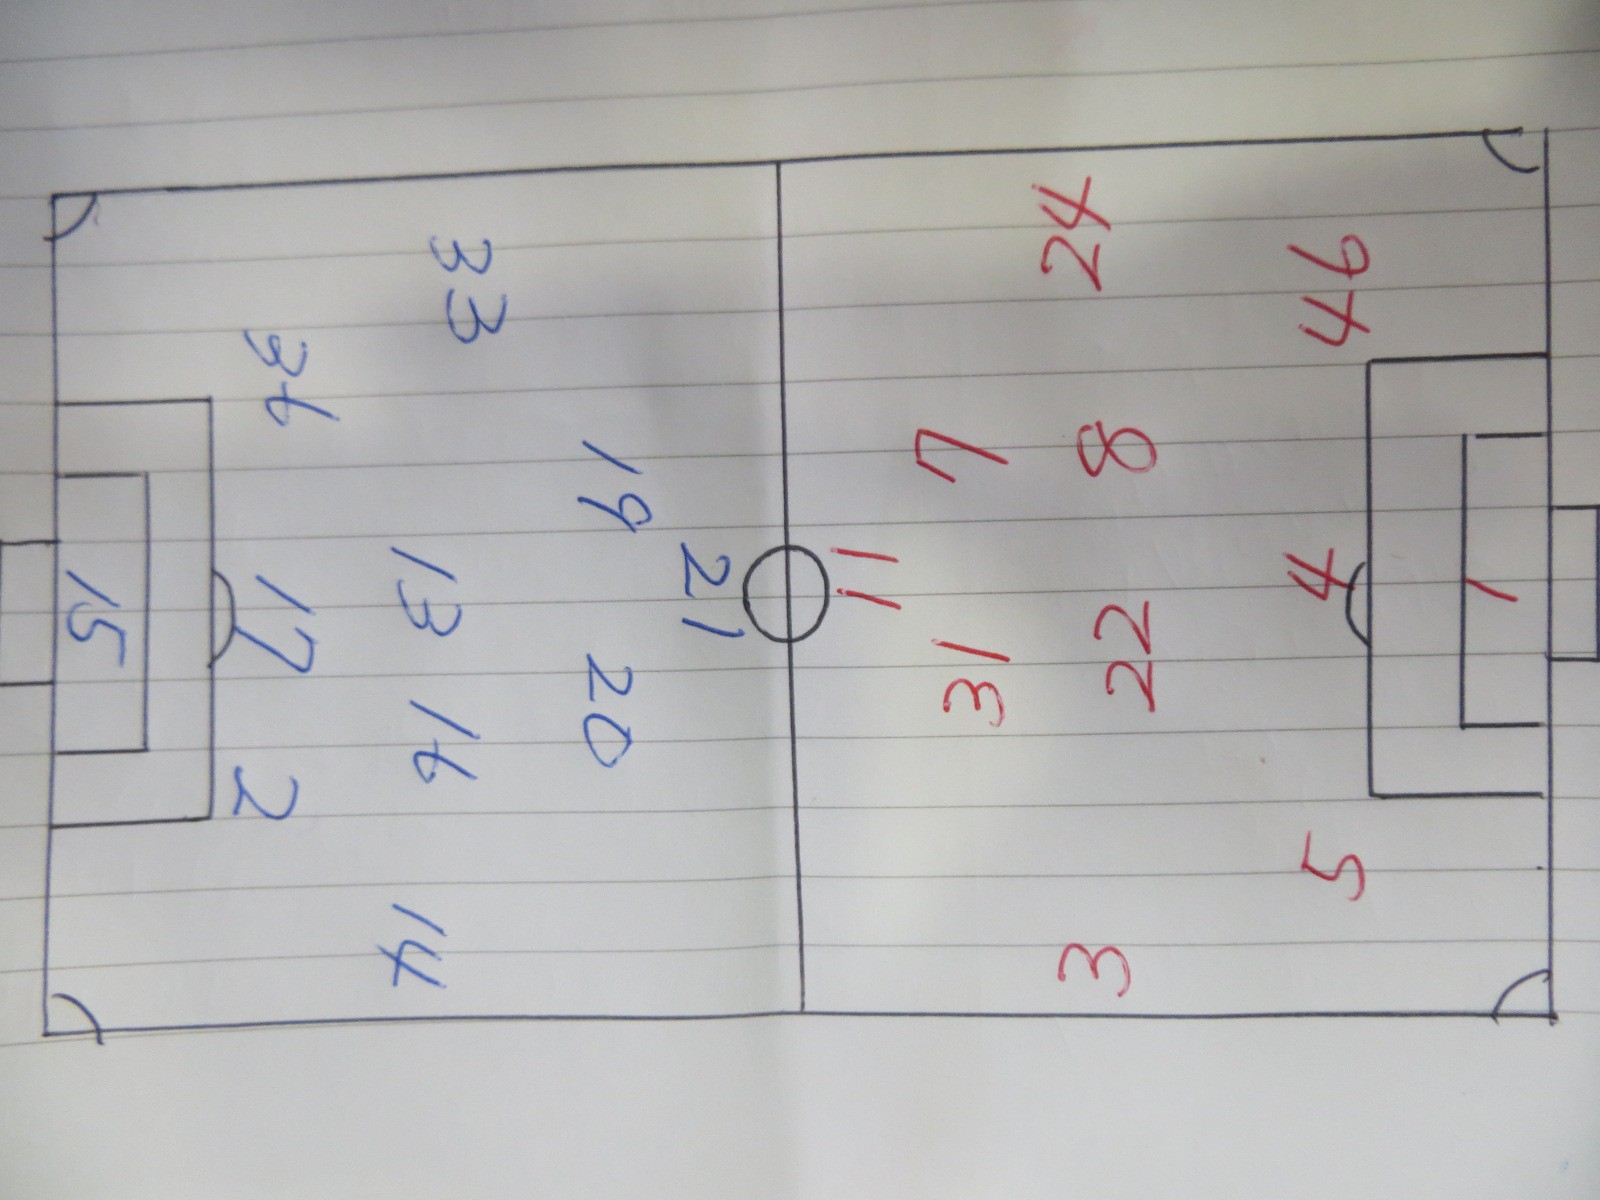 15
36 17 2
33 13 16 14
19 20
21
11
7 31
24 8 22 3
46 4 5
1